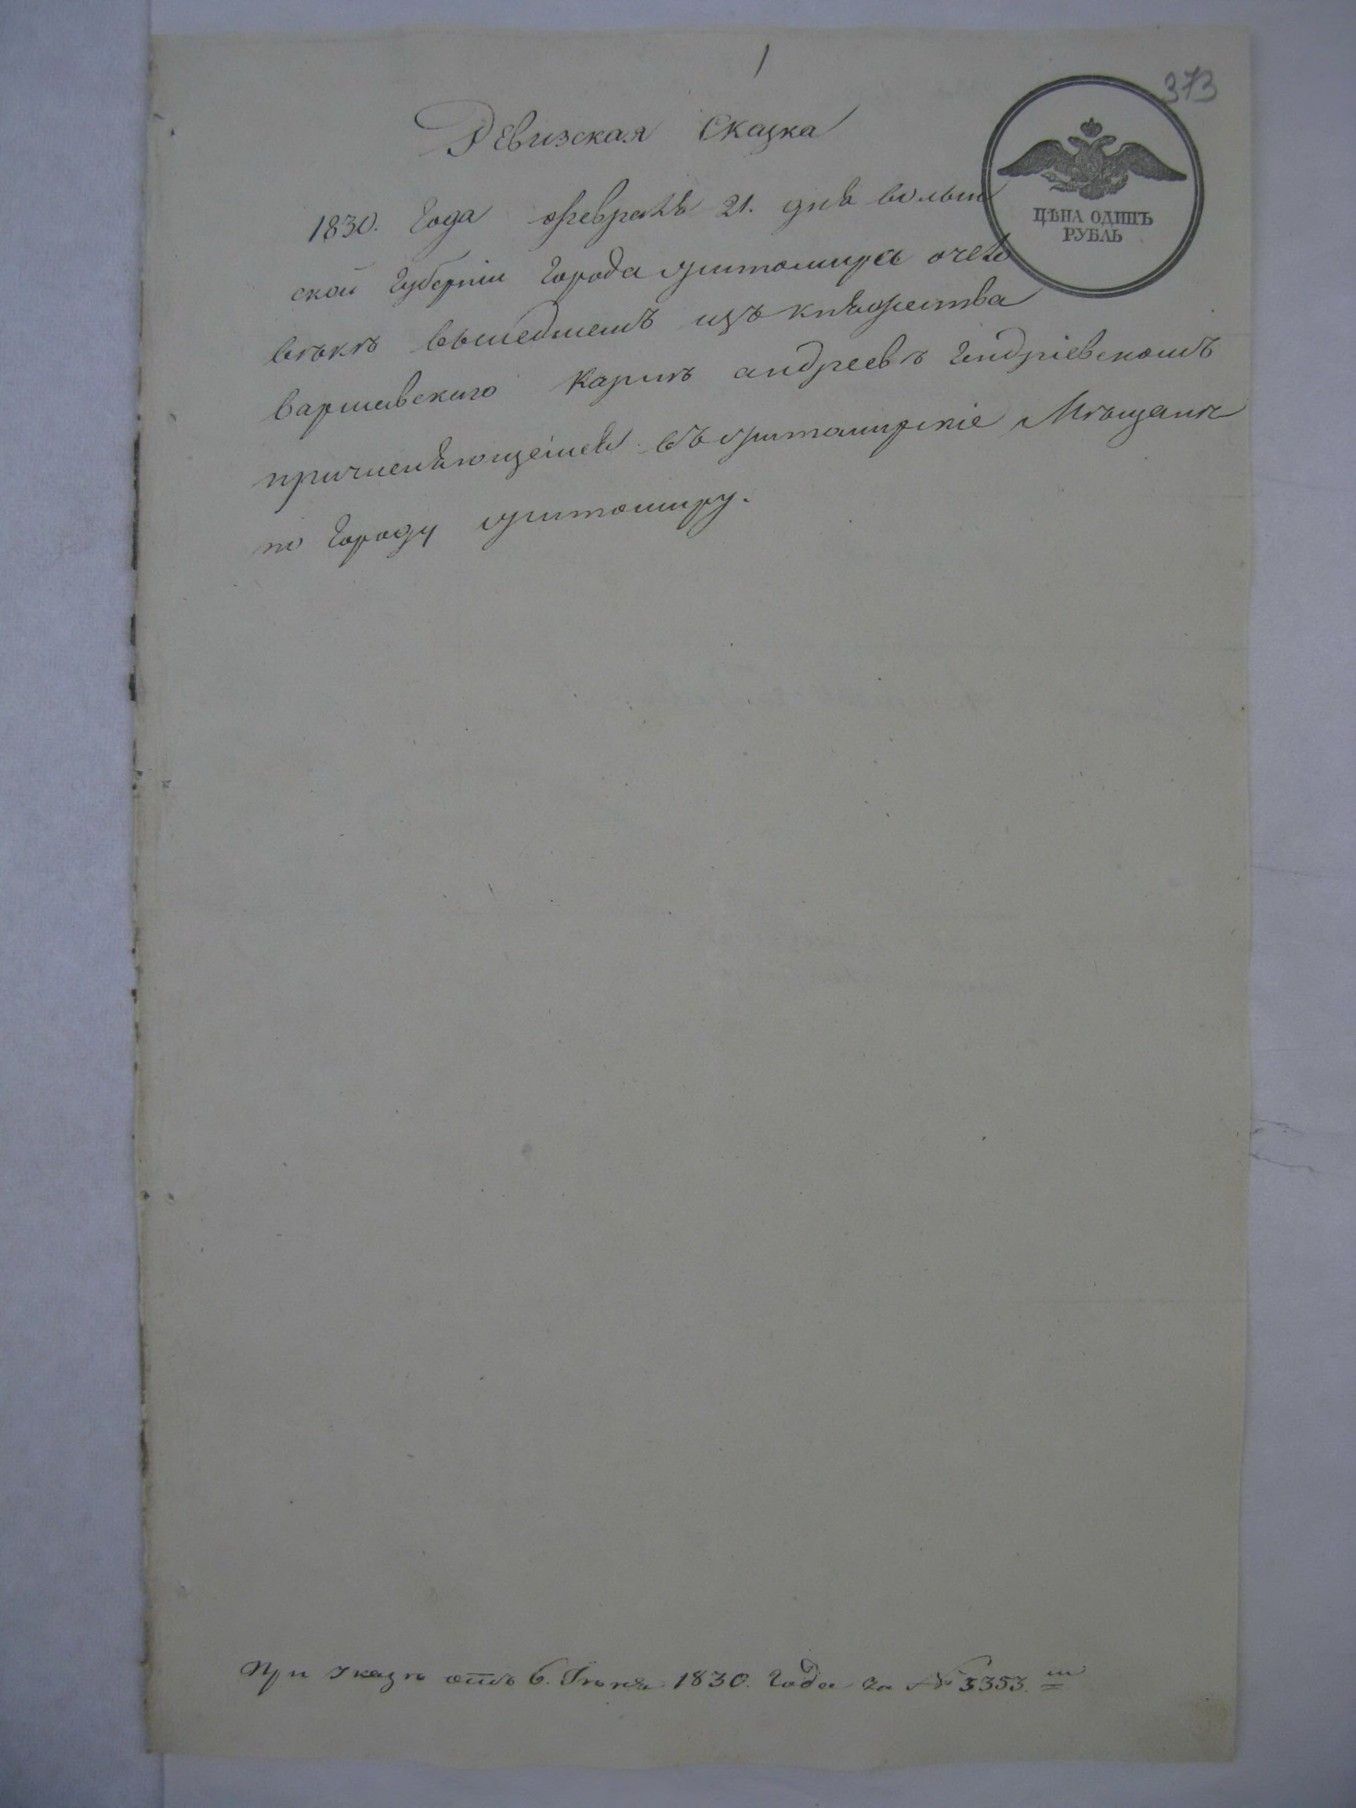 1
373
Ревизская Сказка
ЦѢНА ОДИНЪ
РУБЛЬ
1830. Года февраля 21. дня волын
ской Губерніи Города житомира очело
вѣкѣ вышедшемъ изъ княжества
варшавского андреевѣ
причисляющемся въ житомирские Мѣщане
по Городу житомиру.
При указѣ отъ 6. Іюня 1830. Года за № 5353.м